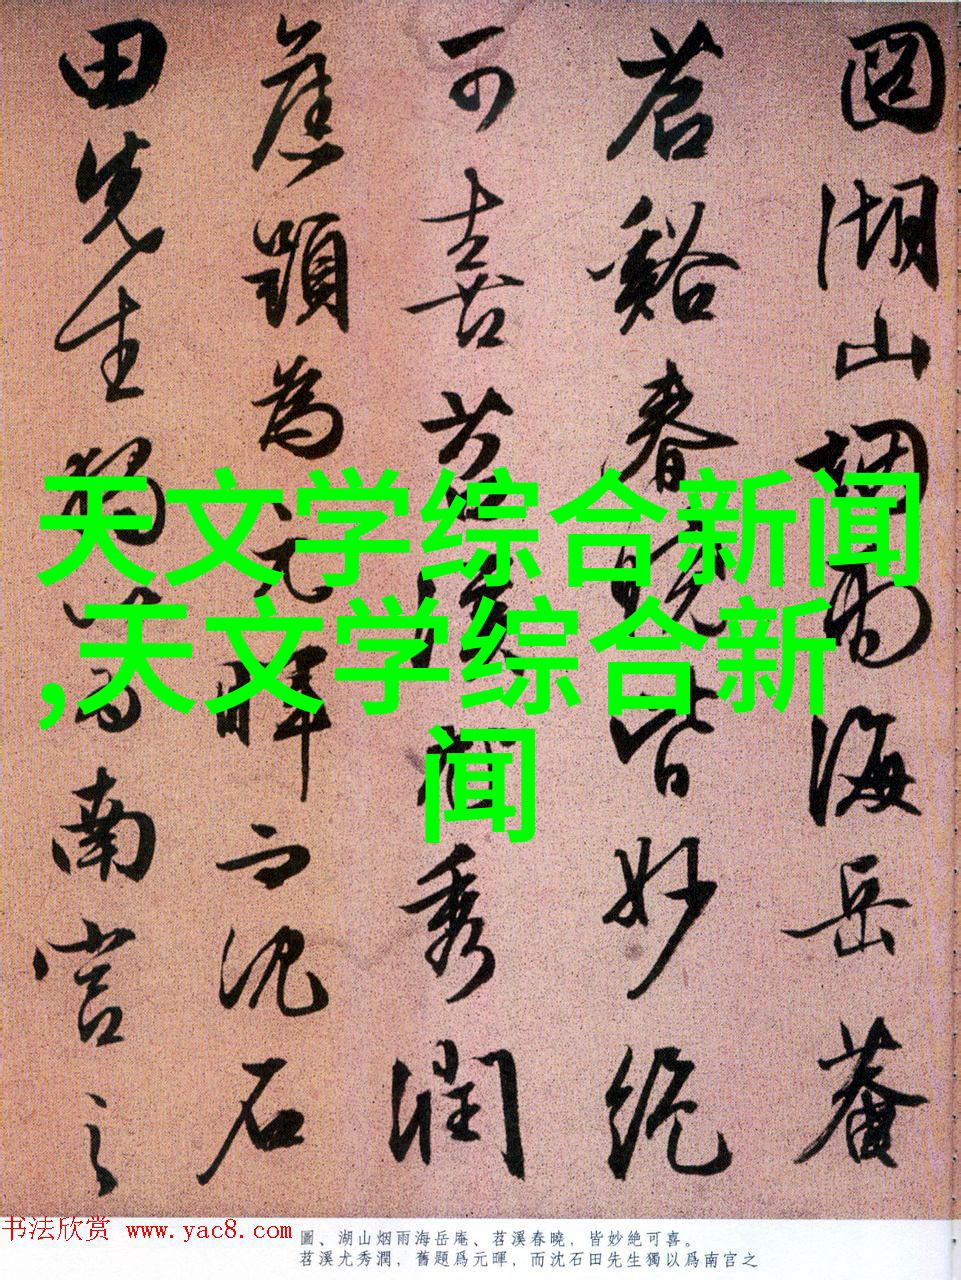 圖湖山烟雨海岳菴
苕谿春曉皆妙絶
可喜苕溪尤秀潤
舊題為元暉而沈石
田先生獨以為南宮之
天文学综合新闻
,天文学综合新
闻
书法欣赏 www.yac8.com
圖、湖山烟雨海岳庵、苕溪春曉，皆妙絶可喜。
苕溪尤秀潤，舊題爲元暉，而沈石田先生獨以爲南宫之